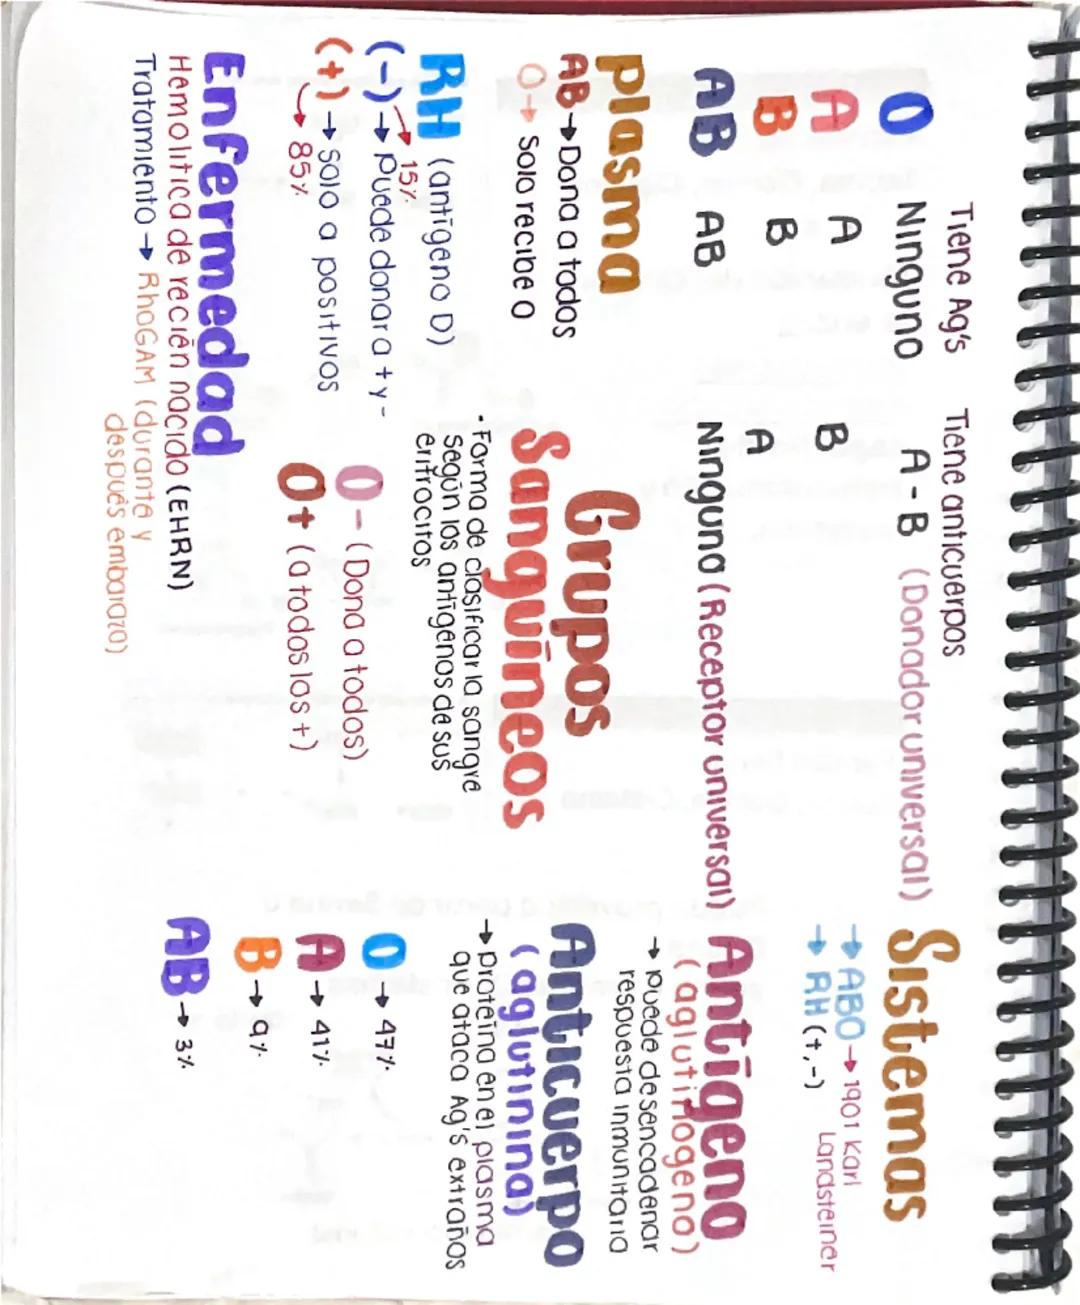 Tiene Ag's Tiene anticuerpos
O Ninguno A - B (Donador universal)
A A B
B B A
AB AB Ninguna (Receptor universal)
Plasma
AB → Dona a todos
O → Solo recibe O
RH (antígeno D)
15%
(-) → Puede donar a + y -
(+) → solo a positivos
85%
Enfermedad
Hemolítica de recién nacido (EHRN)
Tratamiento → RhoGAM (durante y
después embarazo)
Grupos
Sanguíneos
· Forma de clasificar la sangre
según los antígenos de sus
eritrocitos
O - (Dona a todos)
O+ (a todos los +)
Sistemas
→ ABO → 1901 Karl
Landsteiner
→ RH (+, -)
Antígeno
(aglutinogeno)
→ puede desencadenar
respuesta inmunitaria
Anticuerpo
(aglutinina)
→ proteína en el plasma
que ataca Ag's extraños
O → 47%
A → 41%
B → 9%
AB → 3%